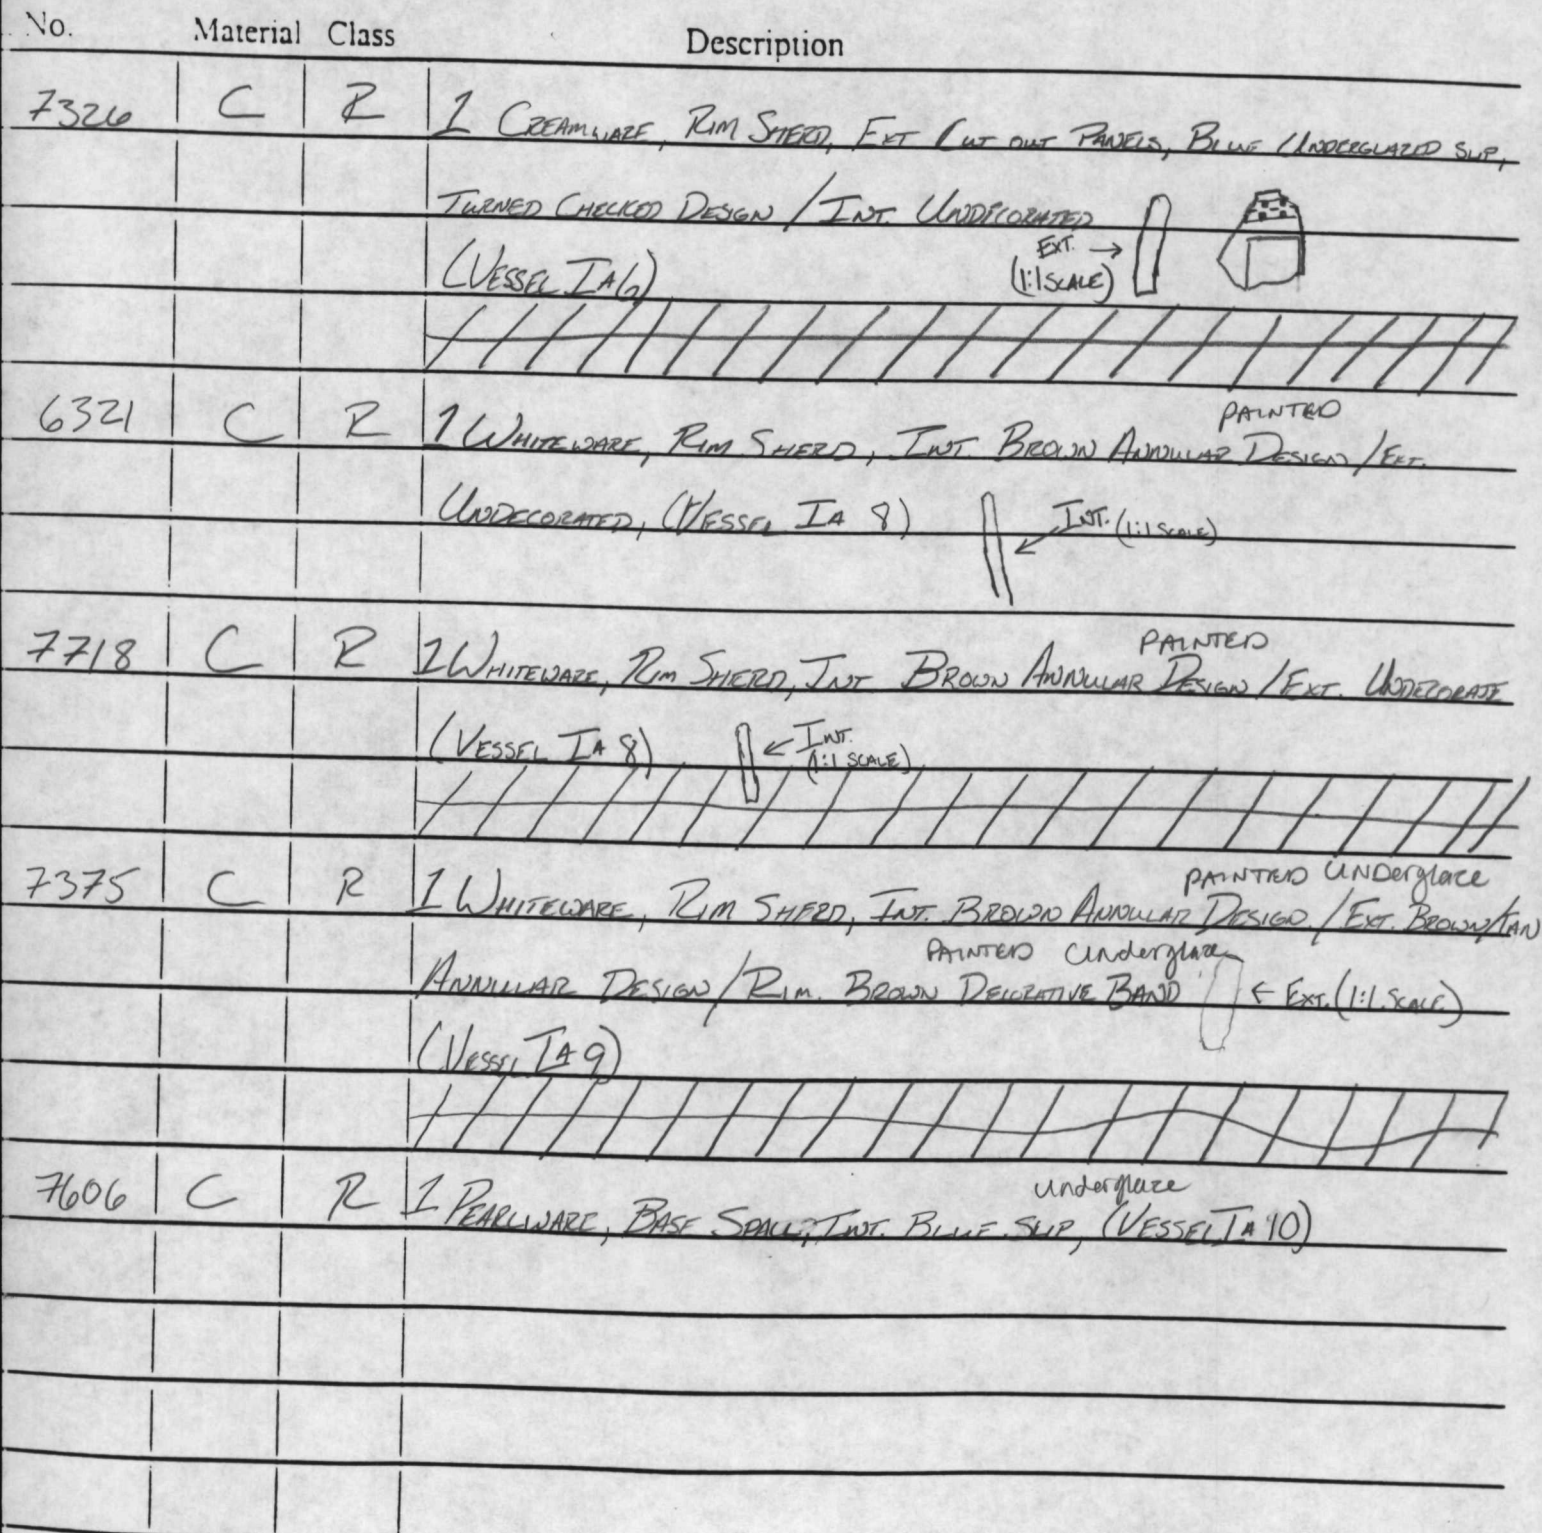 No. Material Class Description
7326 C R 1 CREAMWARE, RIM SHERD, EXT CUT OUT PANELS, BLUE UNDERGLAZED SLIP,
TURNED CHECKED DESIGN / INT. UNDECORATED
EXT. →
(VESSEL IA6) (1:1 SCALE)
PAINTED
6321 C R 1 WHITEWARE, RIM SHERD, INT. BROWN ANNULAR DESIGN / EXT.
UNDECORATED, (VESSEL IA 8) INT. (1:1 SCALE)
PAINTED
7718 C R 1 WHITEWARE, RIM SHERD, INT BROWN ANNULAR DESIGN / EXT. UNDECORATE
(VESSEL IA 8) ← INT.
(1:1 SCALE)
PAINTED UNDERglaze
7375 C R 1 WHITEWARE, RIM SHERD, INT. BROWN ANNULAR DESIGN / EXT. BROWN/TAN
PAINTED Underglaze
ANNULAR DESIGN / RIM. BROWN DECORATIVE BAND ← EXT. (1:1 SCALE)
(VESSEL IA 9)
underglaze
7606 C R 1 PEARLWARE, BASE SPALL, INT. BLUE SLIP, (VESSEL IA 10)